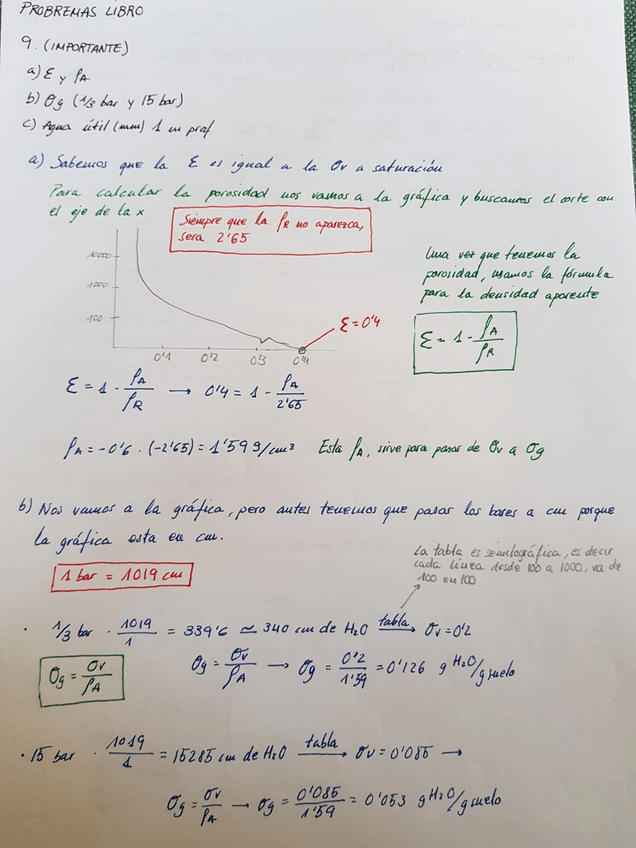 PROBREMAS LIBRO
9. (IMPORTANTE)
a) Ɛ y ρA
b) σg (1/3 bar y 15 bar)
c) Agua útil (mm) 1 m prof
a) Sabemos que la Ɛ es igual a la σv a saturación
Para calcular la porosidad nos vamos a la gráfica y buscamos el corte con
el eje de la x
Siempre que la ρR no aparezca,
sera 2'65
10000
1000
100
0'1 0'2 0'3 0'4
Ɛ = 0'4
Una vez que tenemos la
porosidad, usamos la fórmula
para la densidad aparente
Ɛ = 1 - ρA/ρR
Ɛ = 1 - ρA/ρR → 0'4 = 1 - ρA/2'65
ρA = -0'6 · (-2'65) = 1'59 g/cm³ Esta ρA, sirve para pasar de σv a σg
b) Nos vamos a la gráfica, pero antes tenemos que pasar los bares a cm porque
la gráfica esta en cm.
1 bar = 1019 cm
La tabla es semilográfica, es decir
cada linea desde 100 a 1000, va de
100 en 100
· 1/3 bar · 1019/1 = 339'6 ≃ 340 cm de H2O tabla → σv = 0'2
σg = σv/ρA
σg = σv/ρA → σg = 0'2/1'59 = 0'126 g H2O/g suelo
· 15 bar · 1019/1 = 15285 cm de H2O tabla → σv = 0'085 →
σg = σv/ρA → σg = 0'085/1'59 = 0'053 g H2O/g suelo